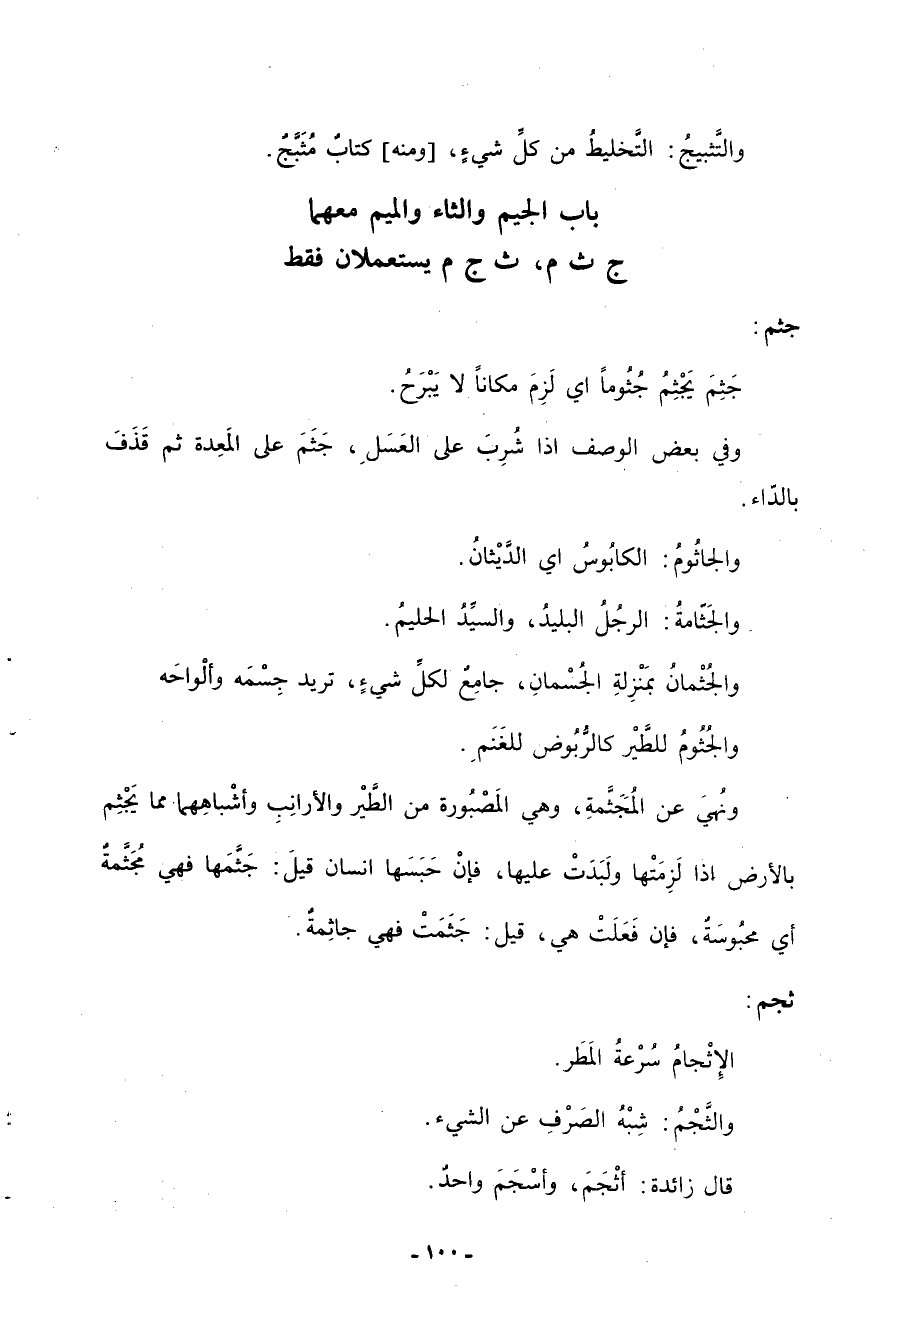 والتَّثبيجُ: التَّخليطُ من كلِّ شيءٍ، [ومنه] كتابٌ مُثَبَّجٌ.
باب الجيم والثاء والميم معهما
ج ث م، ث ج م يستعملان فقط
جثم:
جَثِمَ يَجْثِمُ جُثُوماً اي لَزِمَ مكاناً لا يَبْرَحُ.
وفي بعض الوصف اذا شُرِبَ على العَسَلِ، جَثَمَ على المَعِدة ثم قَذَفَ
بالدّاء.
والجاثُومُ: الكابُوسُ اي الدَّيْثانُ.
والجَثّامةُ: الرجُلُ البليدُ، والسيِّدُ الحليمُ.
والجُثْمانُ بمَنْزِلةِ الجُسْمانِ، جامِعٌ لكلِّ شيءٍ، تريد جِسْمَه وألْواحَه
والجُثُومُ للطَّيْر كالرُّبُوض للغَنَمِ.
ونُهيَ عن المُجَثَّمةِ، وهي المَصْبُورة من الطَّيْر والأرانِبِ وأشْباهِهما مما يَجْثِم
بالأرض اذا لَزِمَتْها ولَبَدَتْ عليها، فإنْ حَبَسَها انسان قيلَ: جَثَّمَها فهي مُجَثَّمةٌ
أي محبُوسَةٌ، فإن فَعَلَتْ هي، قيل: جَثَمَتْ فهي جاثِمةٌ.
ثجم:
الإِثْجامُ سُرْعةُ المَطَر.
والثَّجْمُ: شِبْهُ الصَرْفِ عن الشيء.
قال زائدة: أثْجَمَ، وأسْجَمَ واحدٌ.
- ١٠٠ -